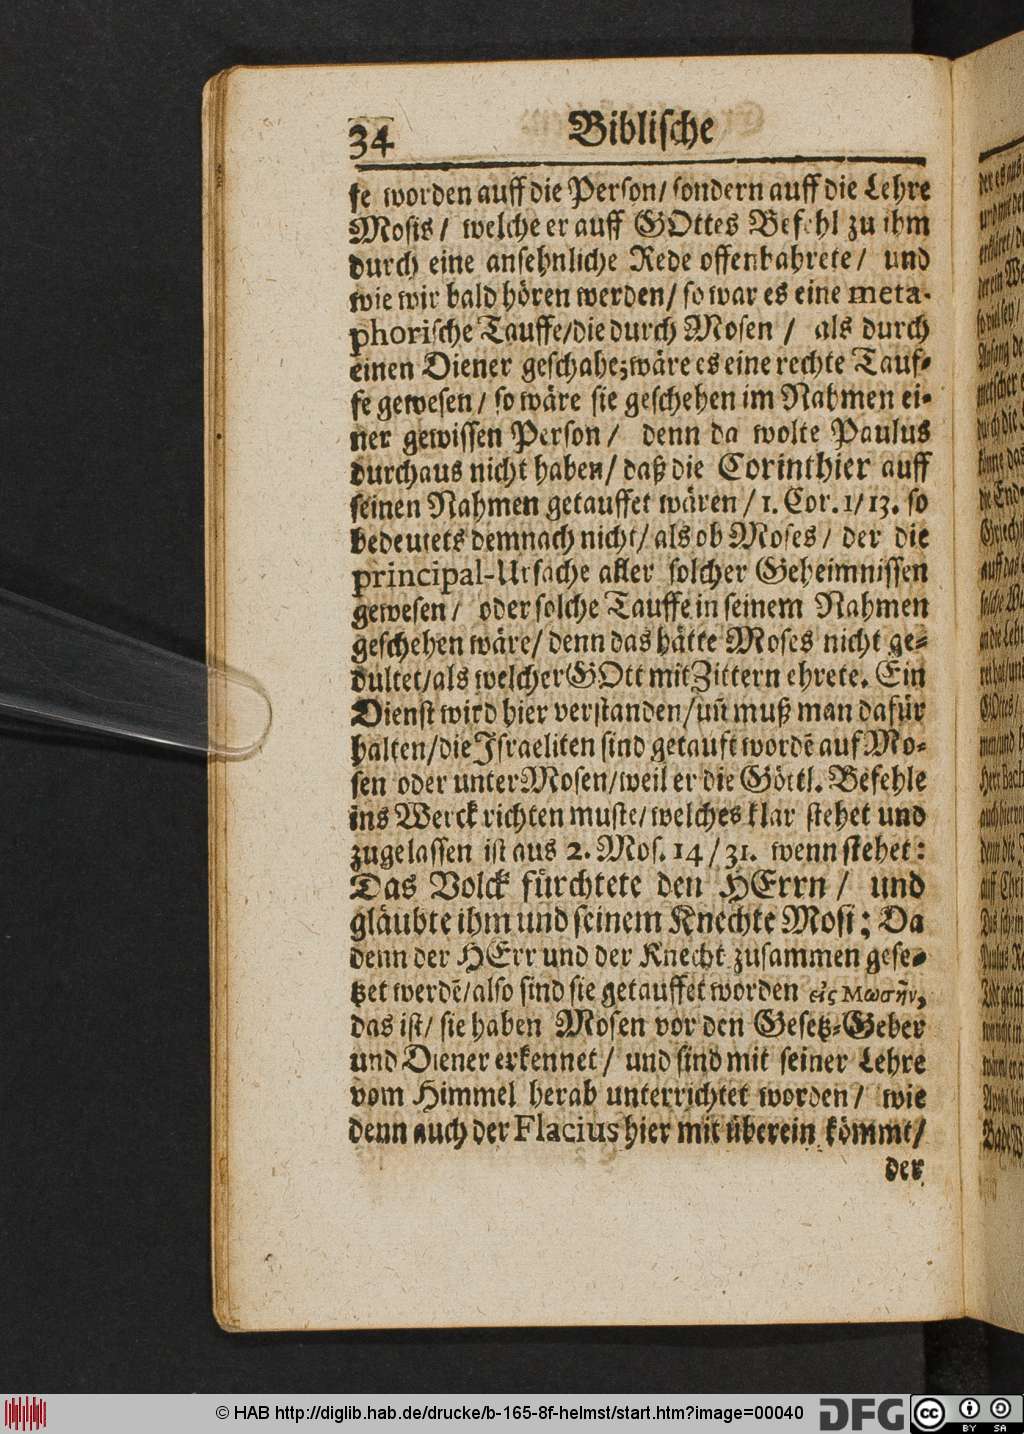 34 Biblische
fe worden auff die Person/ sondern auff die Lehre
Mosis/ welche er auff GOttes Befehl zu ihm
durch eine ansehnliche Rede offenbahrete/ und
wie wir bald hören werden/ so war es eine meta-
phorische Tauffe/die durch Mosen / als durch
einen Diener geschahe; wäre es eine rechte Tauf-
fe gewesen/ so wäre sie geschehen im Nahmen ei-
ner gewissen Person/ denn da wolte Paulus
durchaus nicht haben/ daß die Corinthier auff
seinen Nahmen getauffet wären / 1. Cor. 1/13. so
bedeutets demnach nicht/ als ob Moses/ der die
principal-Ursache aller solcher Geheimnissen
gewesen/ oder solche Tauffe in seinem Nahmen
geschehen wäre/ denn das hätte Moses nicht ge-
dultet/als welcher GOtt mit Zittern ehrete. Ein
Dienst wird hier verstanden/uñ muß man dafür
halten/die Israeliten sind getauft wordẽ auf Mo-
sen oder unter Mosen/weil er die Göttl. Befehle
ins Werck richten muste/ welches klar stehet und
zugelassen ist aus 2. Mos. 14/31. wenn stehet:
Das Volck fürchtete den HErrn/ und
gläubte ihm und seinem Knechte Mosi; Da
denn der HErr und der Knecht zusammen gese-
tzet werdẽ/also sind sie getauffet worden εἰς Μωσῆν,
das ist/ sie haben Mosen vor den Gesetz-Geber
und Diener erkennet/ und sind mit seiner Lehre
vom Himmel herab unterrichtet worden/ wie
denn auch der Flacius hier mit überein kömmt/
der
© HAB http://diglib.hab.de/drucke/b-165-8f-helmst/start.htm?image=00040 DFG cc BY SA